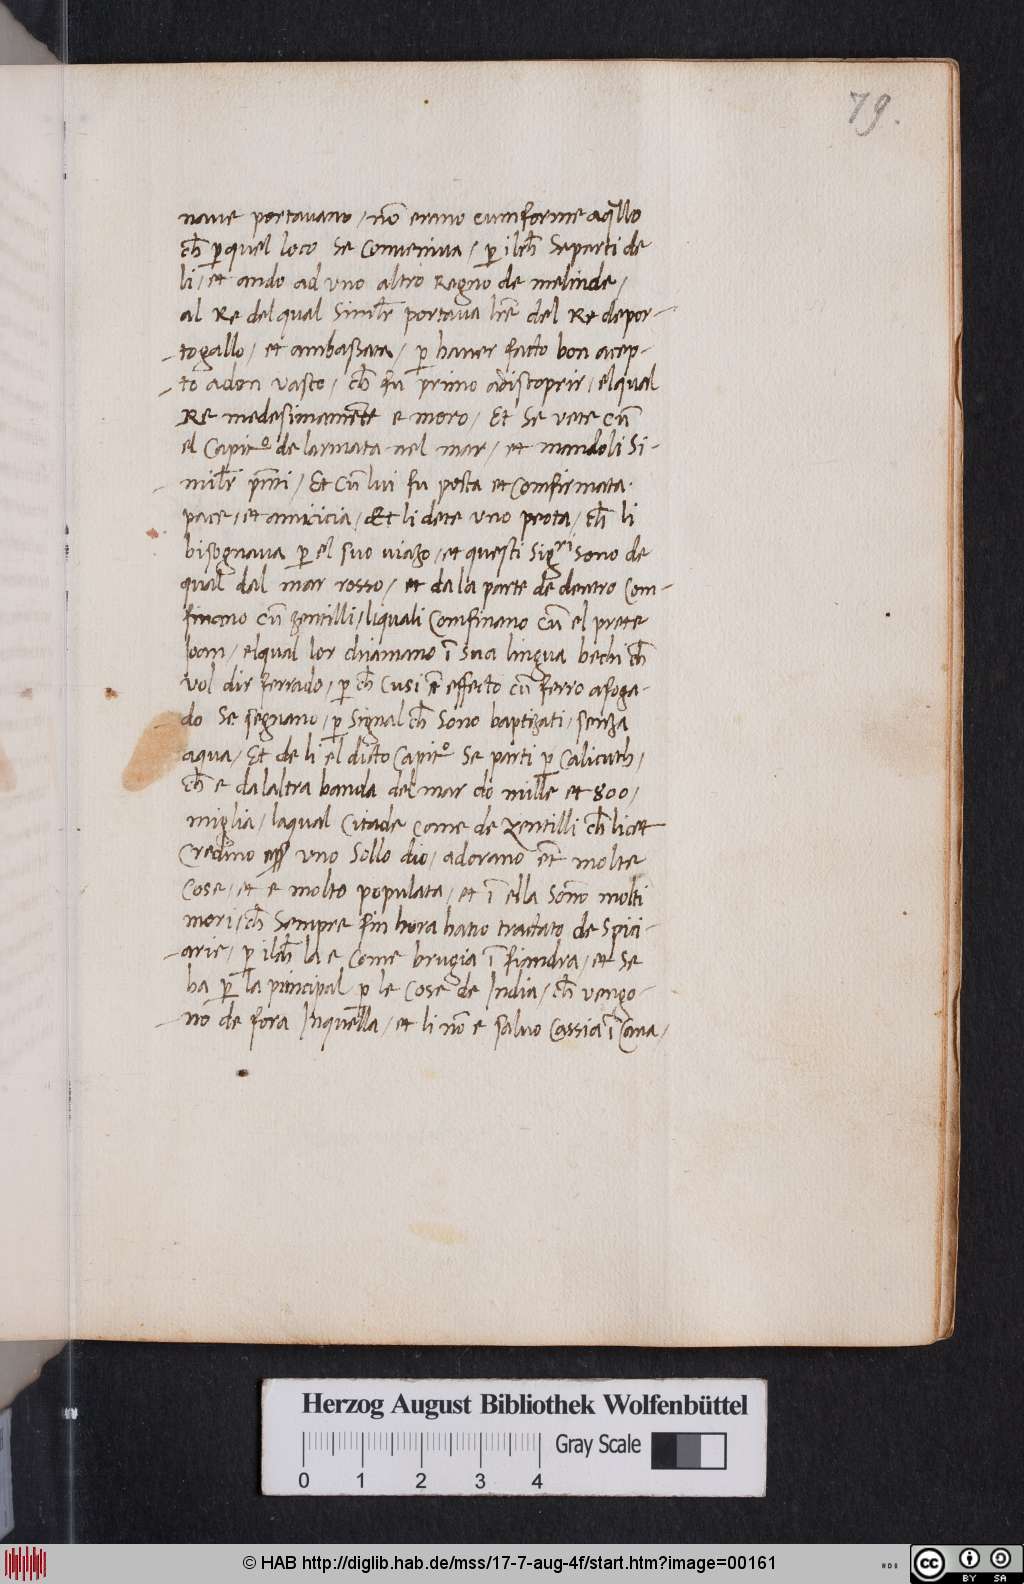 79.
naue portauano / nõ erano cumforme aq̃llo
ch̃ p̱ quel loco se Conueniua / p̱ ilch̃ Se parti de
li / et ando ad vno altro Regno de melinde /
al Re del qual Simil̃r portaua l̃re del Re depor-
-togallo / et ambassata / p̱ hauer facto bon acep-
-to adon vasco / ch̃ fu primo adiscoprir / elqual
Re medesimamẽte e moro / Et Se vete cũ
el Capit.º de larmata nel mar / et mandoli Si-
-mil̃r p̃nti / Et cũ lui fu posta et Comfirmata
pace / et amicicia / Et li dete vno peota / ch̃ li
bisognaua p̱ el suo uiazo / et questi Sig.ri sono de
qual̃ dal mar rosso / et da la parte de dentro Com-
finano cũ zentilli / liquali Comfinano cũ el prete
Joan / elqual lor chiamano ĩ sua lingua bechi ch̃
vol dir ferrado / p̱ ch̃ cusi ẽ effecto cũ ferro afoga-
-do Se segnano / p̱ Signal ch̃ Sono baptizati / senza
aqua / Et de li el dicto Capit.º Se parti p̱ Calicuth /
ch̃ e dalaltra banda del mar do mille et 800 /
miglia / laqual Citade Come de zentilli ch̃ licet
Credino vno Sollo dio / adorano et̃ molte
Cose / et e molto populata / et ĩ ella Sonno molti
mori / ch̃ Sempre fin hora hano tractato de Spici-
-arie / p̱ ilch̃ la e Come brugia ĩ fiandra / et Se
ha p̱ la principal p̱ le Cose de India / ch̃ vengo-
-no de fora Inquella / et li nõ e saluo Cassia ĩ Cana /
Herzog August Bibliothek Wolfenbüttel
0 1 2 3 4 Gray Scale
© HAB http://diglib.hab.de/mss/17-7-aug-4f/start.htm?image=00161
cc BY SA